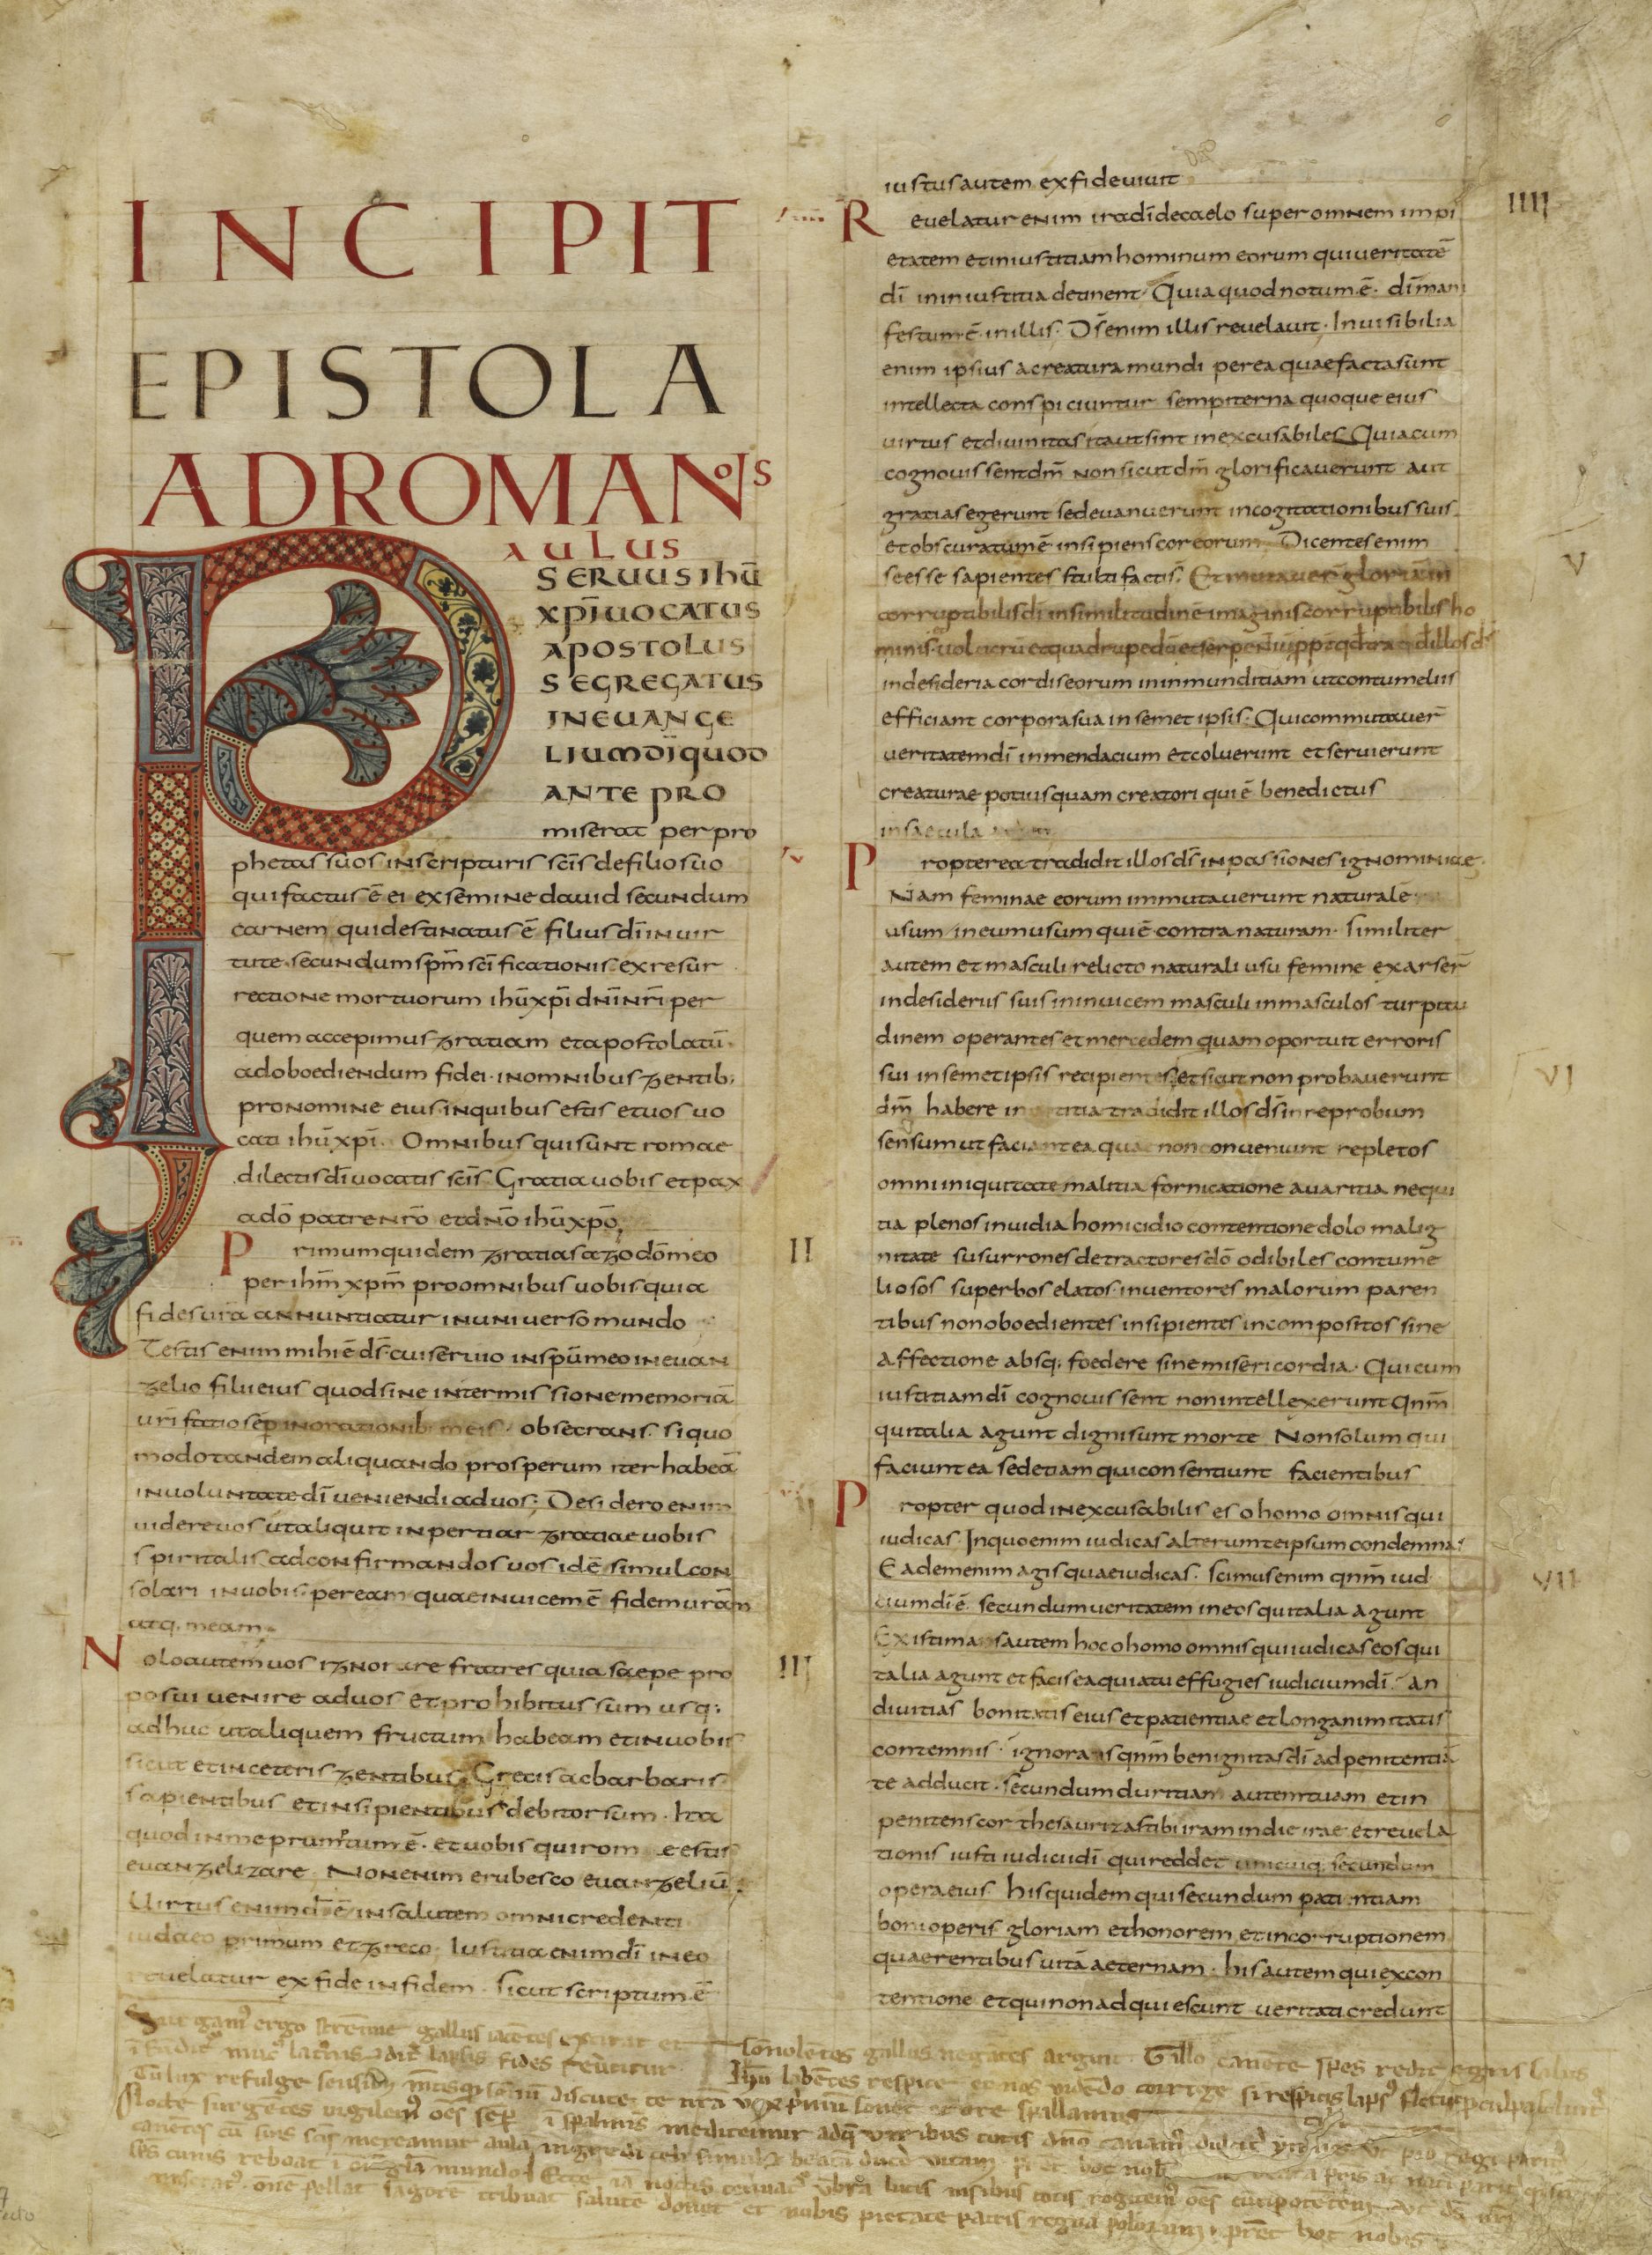 INCIPIT
EPISTOLA
AD ROMANOS
PAULUS
SERUUS ihū
xpī UOCATUS
APOSTOLUS
SEGREGATUS
IN EUANGE
LIUM dī quod
ANTE PRO
miserat per pro
phetas suos in scripturis scīs de filio suo
qui factus ē ei ex semine dauid secundum
carnem qui destinatus ē filius dī in uir
tute secundum spm̄ scīficationis ex resur
rectione mortuorum ihū xpī dn̄i nr̄i per
quem accepimus gratiam et apostolatū.
ad oboediendum fidei. in omnibus gentib;
pro nomine eius. in quibus estis et uos uo
cati ihū xpī. Omnibus qui sunt romae
dilectis dī uocatis scīs. Gratia uobis et pax
a dō patre nr̄o et dn̄o ihū xpō.
II
Primum quidem gratias ago dō meo
per ihm̄ xpm̄ pro omnibus uobis. quia
fides ur̄a annuntiatur in uniuerso mundo
Testis enim mihi ē ds̄. cui seruio in spū meo in euan
gelio filii eius quod sine intermissione memoriā
ur̄i facio sēp in orationib; meis. obsecrans. si quo
modo tandem aliquando prosperum iter habeā
in uoluntate dī ueniendi ad uos; Desidero enim
uidere uos ut aliquit inpertiar gratiae uobis
spiritalis. ad confirmandos uos id ē simul con
solari in uobis. per eam quae inuicem ē fidem ur̄am
atq. meam.
III
Nolo autem uos ignorare fratres quia saepe pro
posui uenire ad uos et prohibitus sum usq;
adhuc ut aliquem fructum habeam et in uobis
sicut et in ceteris gentibus. Grecis ac barbaris
sapientibus et insipientibus debitor sum. Ita
quod in me prumtum ē. et uobis qui rom e estis
euangelizare. Non enim erubesco euangeliū.
Uirtus enim dī ē in salutem omni credenti
iudaeo primum et greco. Iustitia enim dī in eo
reuelatur ex fide in fidem. sicut scriptum ē
iustus autem ex fide uiuit
IIII
Reuelatur enim ira dī de caelo super omnem impi
etatem et iniustitiam hominum eorum qui ueritatē
dī in iniustitia detinent. Quia quod notum ē. dī mani
festum ē in illis. Ds̄ enim illis reuelauit. Inuisibilia
enim ipsius a creatura mundi per ea quae facta sunt
intellecta conspiciuntur sempiterna quoque eius
uirtus et diuinitas ita ut sint inexcusabiles. Quia cum
cognouissent dm̄ non sicut dm̄ glorificauerunt aut
gratias egerunt sed euanuerunt in cogitationibus suis
et obscuratum ē insipiens cor eorum. Dicentes enim
V
se esse sapientes stulti facti s̄. Et mutauer̄ gloriam in
corruptibilis dī in similitudinē imaginis corruptibilis ho
minis. uolucrū et quadrupedū et serpentiū
in desideria cordis eorum in inmunditiam ut contumeliis
efficiant corpora sua in semet ipsis. Qui commutauer̄
ueritatem dī in mendacium et coluerunt et seruierunt
creaturae potius quam creatori qui ē benedictus
in saecula
Propterea tradidit illos ds̄ in passiones ignominiae.
Nam feminae eorum immutauerunt naturalē
usum in eum usum qui ē contra naturam. similiter
autem et masculi relicto naturali usu femine exarser̄
in desideriis suis in inuicem masculi in masculos turpitu
dinem operantes et mercedem quam oportuit erroris
VI
sui in semet ipsis recipientes. et sicut non probauerunt
dm̄ habere in notitia tradidit illos ds̄ in reprobum
sensum ut faciant ea quae non conueniunt repletos
omni iniquitate malitia fornicatione auaritia nequi
tia plenos inuidia homicidio contentione dolo malig
nitate susurrones detractores dō odibiles contume
liosos superbos elatos. inuentores malorum paren
tibus non oboedientes insipientes incompositos sine
affectione absq; foedere sine misericordia. Qui cum
iustitiam dī cognouissent non intellexerunt qn̄m
qui talia agunt digni sunt morte Non solum qui
faciunt ea sed etiam qui consentiunt facientibus
Propter quod inexcusabilis es o homo omnis qui
iudicas. In quo enim iudicas alterum te ipsum condemnas
VII
Eadem enim agis quae iudicas. scimus enim qn̄m iudi
cium dī ē. secundum ueritatem in eos qui talia agunt
Existimas autem hoc o homo omnis qui iudicas eos qui
talia agunt et facis ea quia tu effugies iudicium dī. an
diuitias bonitatis eius et patientiae et longanimitatis
contemnis. ignoras qn̄m benignitas dī ad penitentiā
te adducit. secundum duritiam autem tuam et in
penitens cor thesaurizas tibi iram in die irae et reuela
tionis iusti iudicii dī qui reddet unicuiq; secundum
opera eius. his quidem qui secundum patientiam
boni operis gloriam et honorem et incorruptionem
quaerentibus uitā aeternam. his autem qui ex con
tentione et qui non adquiescunt ueritati credunt
Surgam' ergo strenue gallus iacētes excitat et somnolētos gallus negātes arguit. Gallo canēte spes redit egris salus
fides reuertitur. Ihū labētes respice et nos uidēdo corrige si respicis
Tu lux refulge sensibus mētisq; somnū discute te nr̄a uox primū sonet et ore psallamus
Nocte surgētes uigilem' oēs sēp ī psalmis meditemur adq; uiribus totis dn̄o canam' dulcit̄ ymnos
canētes cū suis scīs mereamur aulā ingredi celi simul et beatā ducē uitam
mundo Ecce iā noctis tenuat' ūbra lucis totis rogitem' oēs cūctipotētem
tribuat salutē donet et nobis pietate patris regna polorum. prēt hoc nobis